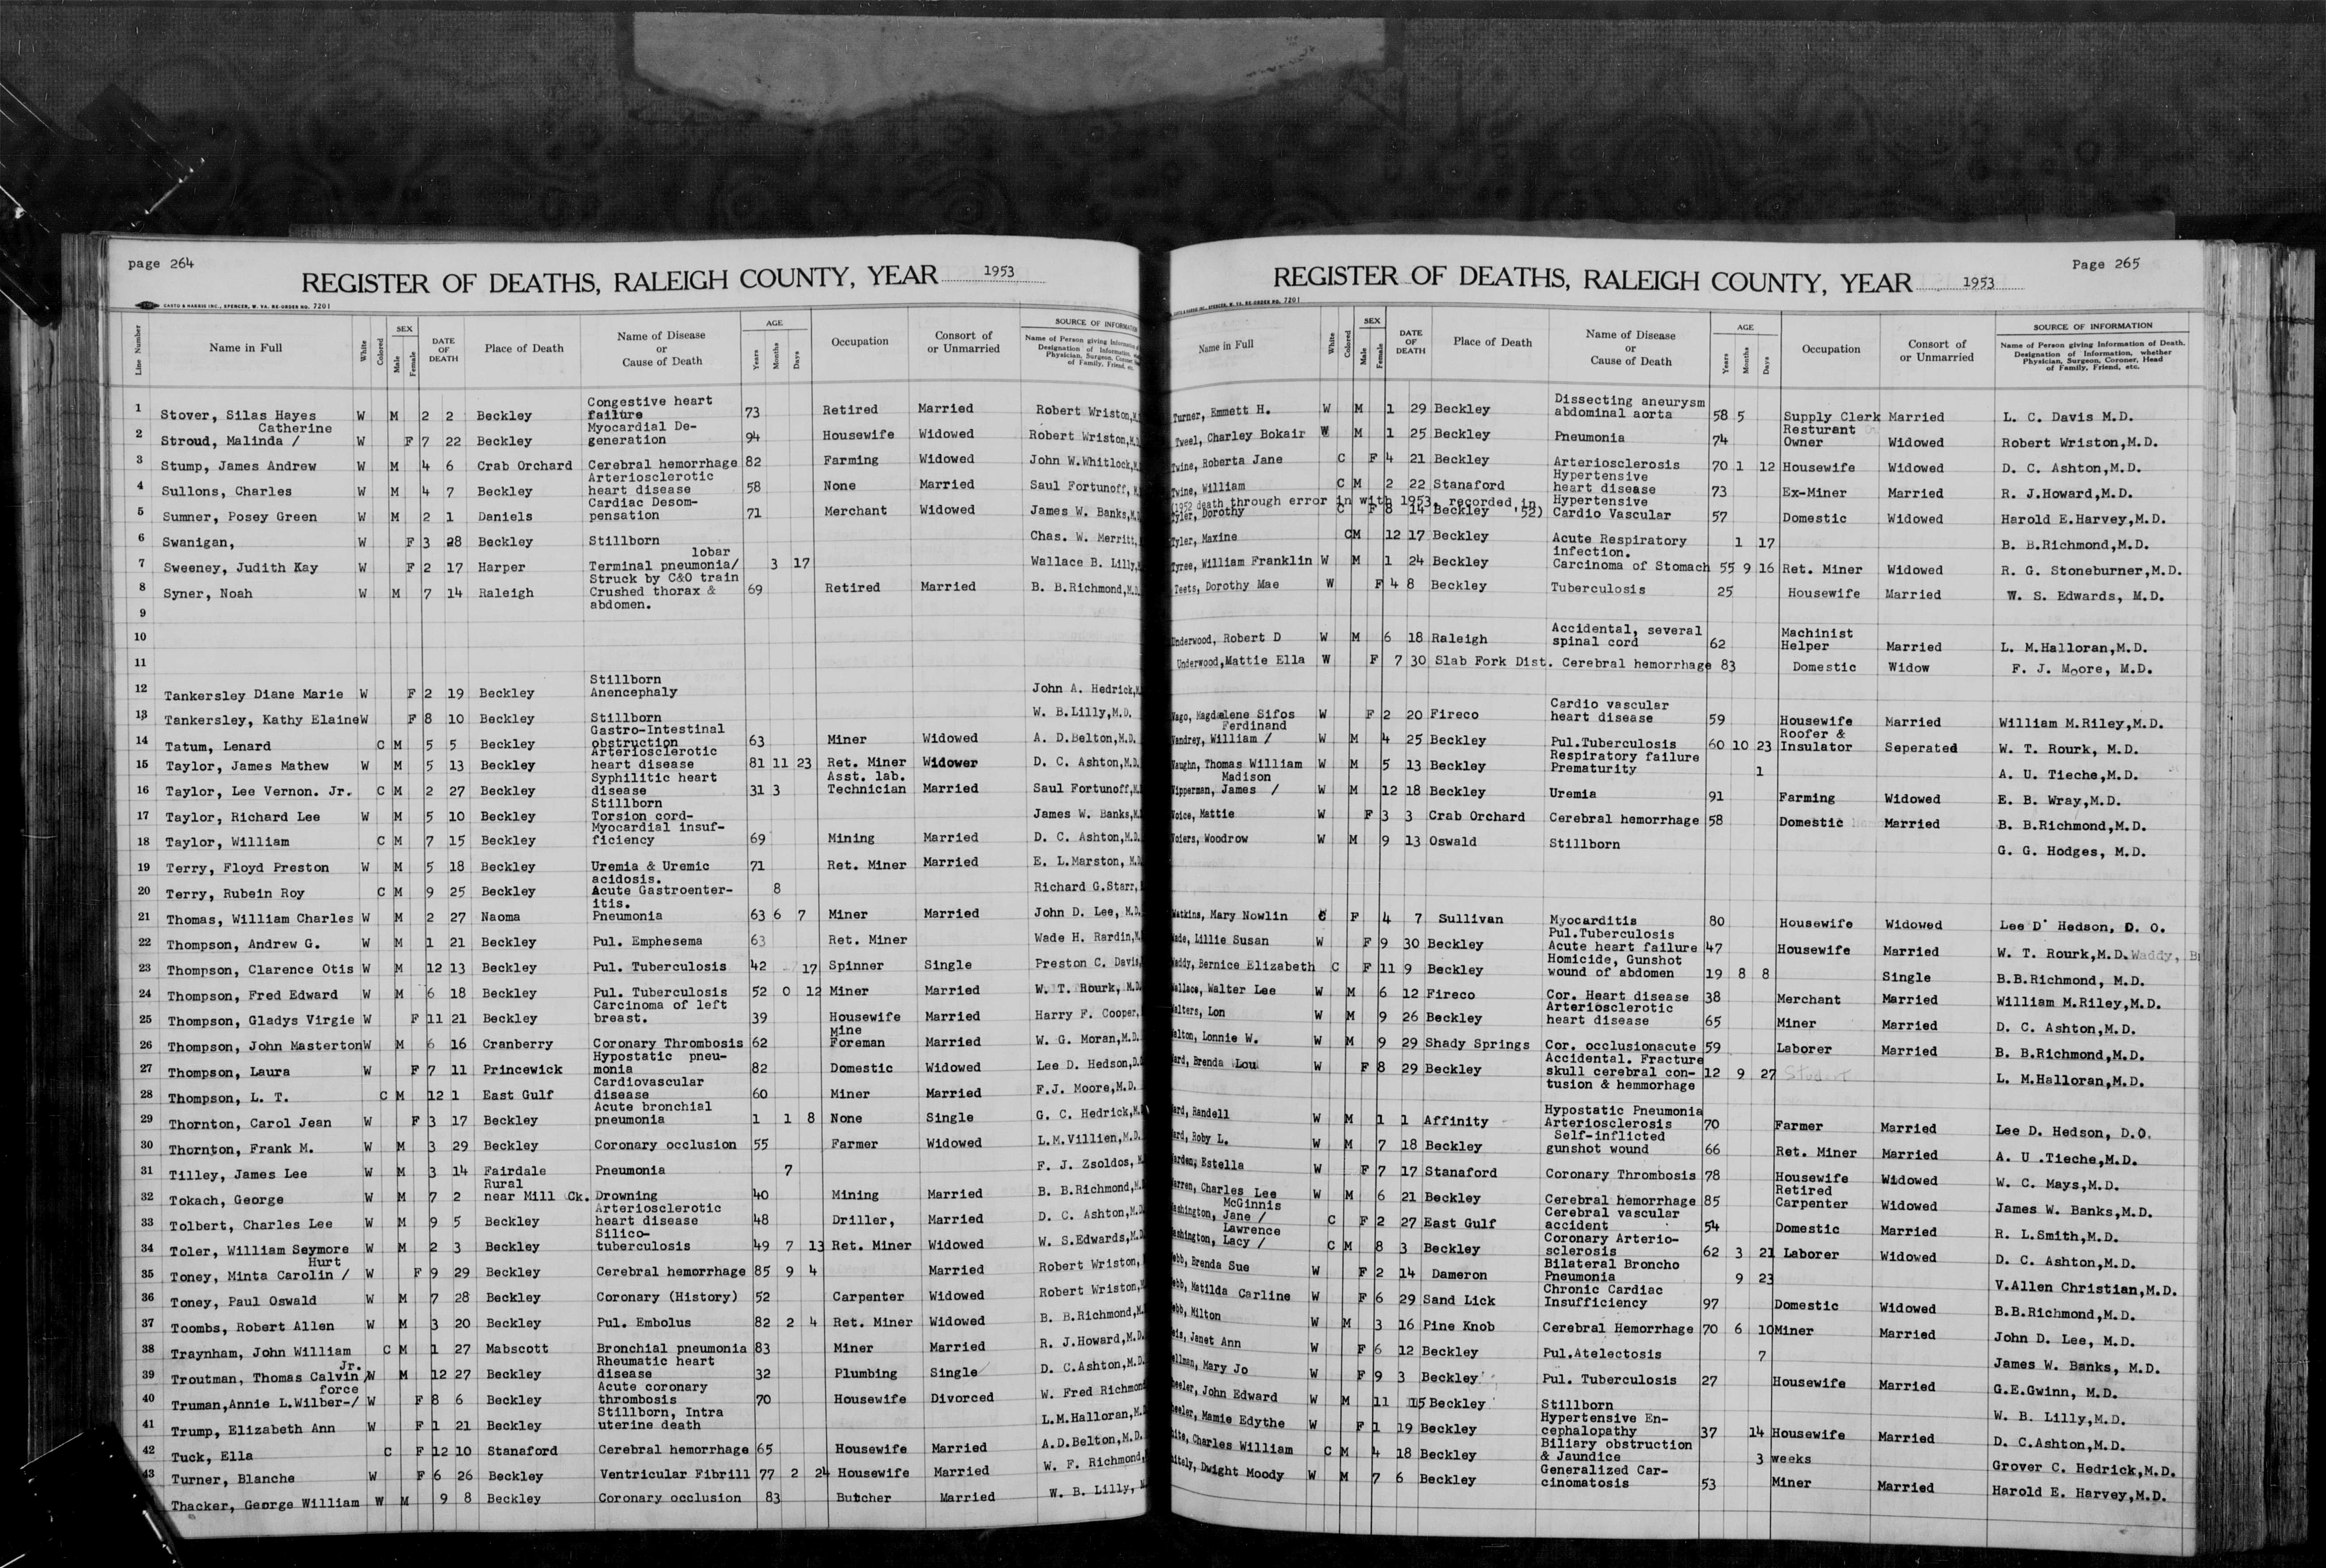 page 264
REGISTER OF DEATHS, RALEIGH COUNTY, YEAR 1953
CASTO & HARRIS INC., SPENCER, W. VA. RE-ORDER NO. 7201
Line Number | Name in Full | White | Colored | SEX Male Female | DATE OF DEATH | Place of Death | Name of Disease or Cause of Death | AGE Years Months Days | Occupation | Consort of or Unmarried | SOURCE OF INFORMATION Name of Person giving Information Designation of Information, Physician, Surgeon, Coroner, of Family, Friend, etc.
1 Stover, Silas Hayes W M 2 2 Beckley Congestive heart failure 73 Retired Married Robert Wriston,
2 Stroud, Malinda / Catherine W F 7 22 Beckley Myocardial De-generation 94 Housewife Widowed Robert Wriston,M.
3 Stump, James Andrew W M 4 6 Crab Orchard Cerebral hemorrhage 82 Farming Widowed John W.Whitlock,
4 Sullons, Charles W M 4 7 Beckley Arteriosclerotic heart disease 58 None Married Saul Fortunoff,
5 Sumner, Posey Green W M 2 1 Daniels Cardiac Desom-pensation 71 Merchant Widowed James W. Banks,M.
6 Swanigan, W F 3 28 Beckley Stillborn Chas. W. Merritt,
7 Sweeney, Judith Kay W F 2 17 Harper Terminal pneumonia/ lobar 3 17 Wallace B. Lilly,
8 Syner, Noah W M 7 14 Raleigh Struck by C&O train Crushed thorax & abdomen. 69 Retired Married B. B.Richmond,M.D.
9
10
11
12 Tankersley Diane Marie W F 2 19 Beckley Stillborn Anencephaly John A. Hedrick,
13 Tankersley, Kathy Elaine W F 8 10 Beckley Stillborn W. B.Lilly,M.D.
14 Tatum, Lenard C M 5 5 Beckley Gastro-Intestinal obstruction 63 Miner Widowed A. D.Belton,M.D.
15 Taylor, James Mathew W M 5 13 Beckley Arteriosclerotic heart disease 81 11 23 Ret. Miner Widower D. C. Ashton,M.D.
16 Taylor, Lee Vernon. Jr. C M 2 27 Beckley Syphilitic heart disease 31 3 Asst. lab. Technician Married Saul Fortunoff,
17 Taylor, Richard Lee W M 5 10 Beckley Stillborn Torsion cord- James W. Banks,
18 Taylor, William C M 7 15 Beckley Myocardial insuf-ficiency 69 Mining Married D. C. Ashton,M.D.
19 Terry, Floyd Preston W M 5 18 Beckley Uremia & Uremic acidosis. 71 Ret. Miner Married E. L.Marston, M.D.
20 Terry, Rubein Roy C M 9 25 Beckley Acute Gastroenter-itis. 8 Richard G.Starr,
21 Thomas, William Charles W M 2 27 Naoma Pneumonia 63 6 7 Miner Married John D. Lee, M.D.
22 Thompson, Andrew G. W M 1 21 Beckley Pul. Emphesema 63 Ret. Miner Wade H. Rardin,
23 Thompson, Clarence Otis W M 12 13 Beckley Pul. Tuberculosis 42 17 Spinner Single Preston C. Davis,
24 Thompson, Fred Edward W M 6 18 Beckley Pul. Tuberculosis 52 0 12 Miner Married W. T. Rourk, M.D.
25 Thompson, Gladys Virgie W F 11 21 Beckley Carcinoma of left breast. 39 Housewife Married Harry F. Cooper,
26 Thompson, John Masterton W M 6 16 Cranberry Coronary Thrombosis 62 Mine Foreman Married W. G. Moran,M.D.
27 Thompson, Laura W F 7 11 Princewick Hypostatic pneu-monia 82 Domestic Widowed Lee D. Hedson,D.O
28 Thompson, L. T. C M 12 1 East Gulf Cardiovascular disease 60 Miner Married F.J. Moore,M.D.
29 Thornton, Carol Jean W F 3 17 Beckley Acute bronchial pneumonia 1 1 8 None Single G. C. Hedrick,M.
30 Thornton, Frank M. W M 3 29 Beckley Coronary occlusion 55 Farmer Widowed L.M.Villien,M.D.
31 Tilley, James Lee W M 3 14 Fairdale Pneumonia 7 F. J. Zsoldos,
32 Tokach, George W M 7 2 Rural near Mill Ck. Drowning 40 Mining Married B. B.Richmond,M.
33 Tolbert, Charles Lee W M 9 5 Beckley Arteriosclerotic heart disease 48 Driller, Married D. C. Ashton,M.D
34 Toler, William Seymore W M 2 3 Beckley Silico-tuberculosis 49 7 13 Ret. Miner Widowed W. S.Edwards,M.D
35 Toney, Minta Carolin / Hurt W F 9 29 Beckley Cerebral hemorrhage 85 9 4 Married Robert Wriston,
36 Toney, Paul Oswald W M 7 28 Beckley Coronary (History) 52 Carpenter Widowed Robert Wriston,
37 Toombs, Robert Allen W M 3 20 Beckley Pul. Embolus 82 2 4 Ret. Miner Widowed B. B.Richmond,M.
38 Traynham, John William C M 1 27 Mabscott Bronchial pneumonia 83 Miner Married R. J.Howard,M.D.
39 Troutman, Thomas Calvin / Jr. W M 12 27 Beckley Rheumatic heart disease 32 Plumbing Single D. C.Ashton,M.D.
40 Truman,Annie L.Wilber-/ force W F 8 6 Beckley Acute coronary thrombosis 70 Housewife Divorced W. Fred Richmond
41 Trump, Elizabeth Ann W F 1 21 Beckley Stillborn, Intra uterine death L.M.Halloran,M.
42 Tuck, Ella C F 12 10 Stanaford Cerebral hemorrhage 65 Housewife Married A.D.Belton,M.D.
43 Turner, Blanche W F 6 26 Beckley Ventricular Fibrill 77 2 24 Housewife Married W. F. Richmond,
Thacker, George William W M 9 8 Beckley Coronary occlusion 83 Butcher Married W. B. Lilly,
Page 265
REGISTER OF DEATHS, RALEIGH COUNTY, YEAR 1953
SPENCER, W. VA. RE-ORDER NO. 7201
Name in Full | White | Colored | SEX Male Female | DATE OF DEATH | Place of Death | Name of Disease or Cause of Death | AGE Years Months Days | Occupation | Consort of or Unmarried | SOURCE OF INFORMATION Name of Person giving Information of Death, Designation of Information, whether Physician, Surgeon, Coroner, Head of Family, Friend, etc.
Turner, Emmett H. W M 1 29 Beckley Dissecting aneurysm abdominal aorta 58 5 Supply Clerk Married L. C. Davis M.D.
Tweel, Charley Bokair W M 1 25 Beckley Pneumonia 74 Resturant Owner Widowed Robert Wriston,M.D.
Twine, Roberta Jane C F 4 21 Beckley Arteriosclerosis 70 1 12 Housewife Widowed D. C. Ashton,M.D.
Twine, William C M 2 22 Stanaford Hypertensive heart disease 73 Ex-Miner Married R. J.Howard,M.D.
(1952 death through error in with 1953, recorded in 52)
Tyler, Dorothy C F 8 14 Beckley Hypertensive Cardio Vascular 57 Domestic Widowed Harold E.Harvey,M.D.
Tyler, Maxine C M 12 17 Beckley Acute Respiratory infection. 1 17 B. B.Richmond,M.D.
Tyree, William Franklin W M 1 24 Beckley Carcinoma of Stomach 55 9 16 Ret. Miner Widowed R. G. Stoneburner,M.D.
Teets, Dorothy Mae W F 4 8 Beckley Tuberculosis 25 Housewife Married W. S. Edwards, M.D.
Underwood, Robert D W M 6 18 Raleigh Accidental, several spinal cord 62 Machinist Helper Married L. M.Halloran,M.D.
Underwood,Mattie Ella W F 7 30 Slab Fork Dist. Cerebral hemorrhage 83 Domestic Widow F. J. Moore, M.D.
Vago, Magdalene Sifos W F 2 20 Fireco Cardio vascular heart disease 59 Housewife Married William M.Riley,M.D.
Vandrey, William / Ferdinand W M 4 25 Beckley Pul.Tuberculosis 60 10 23 Roofer & Insulator Seperated W. T. Rourk, M.D.
Vaughn, Thomas William W M 5 13 Beckley Respiratory failure Prematurity 1 A. U. Tieche,M.D.
Vipperman, James / Madison W M 12 18 Beckley Uremia 91 Farming Widowed E. B. Wray,M.D.
Voice, Mattie W F 3 3 Crab Orchard Cerebral hemorrhage 58 Domestic Married B. B.Richmond,M.D.
Voiers, Woodrow W M 9 13 Oswald Stillborn G. G. Hodges, M.D.
Watkins, Mary Nowlin F 4 7 Sullivan Myocarditis 80 Housewife Widowed Lee D Hedson, D. O.
Wade, Lillie Susan W F 9 30 Beckley Pul.Tuberculosis Acute heart failure 47 Housewife Married W. T. Rourk,M.D. Waddy,
Waddy, Bernice Elizabeth C F 11 9 Beckley Homicide, Gunshot wound of abdomen 19 8 8 Single B.B.Richmond, M.D.
Wallace, Walter Lee W M 6 12 Fireco Cor. Heart disease 38 Merchant Married William M.Riley,M.D.
Walters, Lon W M 9 26 Beckley Arteriosclerotic heart disease 65 Miner Married D. C. Ashton,M.D.
Walton, Lonnie W. W M 9 29 Shady Springs Cor. occlusionacute 59 Laborer Married B. B.Richmond,M.D.
Ward, Brenda Lou W F 8 29 Beckley Accidental. Fracture skull cerebral con-tusion & hemmorhage 12 9 27 Student L. M.Halloran,M.D.
Ward, Randell W M 1 1 Affinity Hypostatic Pneumonia Arteriosclerosis 70 Farmer Married Lee D. Hedson, D.O.
Ward, Roby L. W M 7 18 Beckley Self-inflicted gunshot wound 66 Ret. Miner Married A. U .Tieche,M.D.
Warden, Estella W F 7 17 Stanaford Coronary Thrombosis 78 Housewife Widowed W. C. Mays,M.D.
Warren, Charles Lee W M 6 21 Beckley Cerebral hemorrhage 85 Retired Carpenter Widowed James W. Banks,M.D.
Washington, Jane / McGinnis C F 2 27 East Gulf Cerebral vascular accident 54 Domestic Married R. L.Smith,M.D.
Washington, Lacy / Lawrence C M 8 3 Beckley Coronary Arterio-sclerosis 62 3 21 Laborer Widowed D. C. Ashton,M.D.
Webb, Brenda Sue W F 2 14 Dameron Bilateral Broncho Pneumonia 9 23 V.Allen Christian,M.D.
Webb, Matilda Carline W F 6 29 Sand Lick Chronic Cardiac Insufficiency 97 Domestic Widowed B.B.Richmond,M.D.
Webb, Milton W M 3 16 Pine Knob Cerebral Hemorrhage 70 6 10 Miner Married John D. Lee, M.D.
Janet Ann W F 6 12 Beckley Pul.Atelectosis 7 James W. Banks, M.D.
Mary Jo W F 9 3 Beckley Pul. Tuberculosis 27 Housewife Married G.E.Gwinn, M.D.
Wheeler, John Edward W M 11 15 Beckley Stillborn W. B. Lilly,M.D.
Wheeler, Mamie Edythe W F 1 19 Beckley Hypertensive En-cephalopathy 37 14 Housewife Married D. C.Ashton,M.D.
White, Charles William C M 4 18 Beckley Biliary obstruction & Jaundice 3 weeks Grover C. Hedrick,M.D.
Dwight Moody W M 7 6 Beckley Generalized Car-cinomatosis 53 Miner Married Harold E. Harvey,M.D.